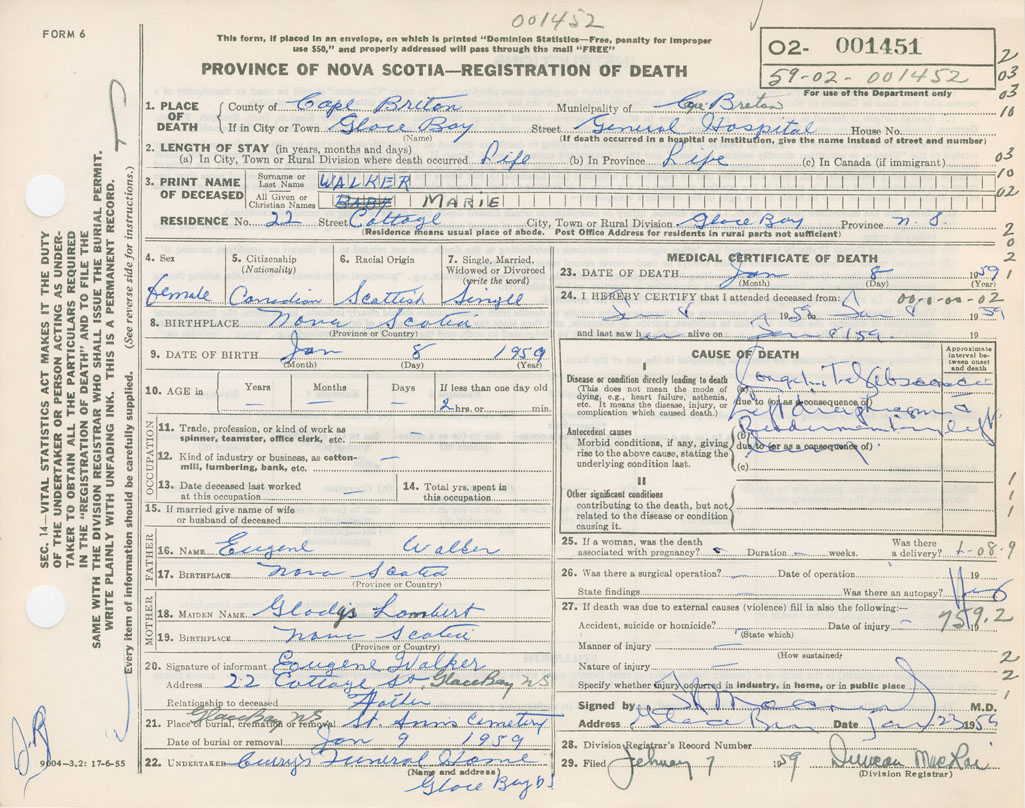 001452
FORM 6
This form, if placed in an envelope, on which is printed "Dominion Statistics—Free, penalty for improper
use $50," and properly addressed will pass through the mail "FREE"
PROVINCE OF NOVA SCOTIA—REGISTRATION OF DEATH
O2- 001451
59-02-001452
For use of the Department only
2
03
03
16
03
10
02
2
0
2
1
1. PLACE OF DEATH
County of Cape Breton Municipality of Cape Breton
If in City or Town Glace Bay Street General Hospital House No.
(Name) (If death occurred in a hospital or institution, give the name instead of street and number)
2. LENGTH OF STAY (in years, months and days)
(a) In City, Town or Rural Division where death occurred Life (b) In Province Life (c) In Canada (if immigrant)
3. PRINT NAME OF DECEASED
Surname or Last Name WALKER
All Given or Christian Names BABY MARIE
RESIDENCE No. 22 Street Cottage City, Town or Rural Division Glace Bay Province N.S.
(Residence means usual place of abode. Post Office Address for residents in rural parts not sufficient)
4. Sex
female
5. Citizenship
(Nationality)
Canadian
6. Racial Origin
Scottish
7. Single, Married,
Widowed or Divorced
(write the word)
Single
8. BIRTHPLACE Nova Scotia
(Province or Country)
9. DATE OF BIRTH Jan 8 1959
(Month) (Day) (Year)
10. AGE in Years Months Days If less than one day old
— — — 2 hrs. or min.
OCCUPATION
11. Trade, profession, or kind of work as
spinner, teamster, office clerk, etc. —
12. Kind of industry or business, as cotton-
mill, lumbering, bank, etc. —
13. Date deceased last worked
at this occupation —
14. Total yrs. spent in
this occupation
15. If married give name of wife
or husband of deceased —
FATHER
16. NAME Eugene Walker
17. BIRTHPLACE Nova Scotia
(Province or Country)
MOTHER
18. MAIDEN NAME Gladys Lambert
19. BIRTHPLACE Nova Scotia
(Province or Country)
20. Signature of informant Eugene Walker
Address 22 Cottage St. Glace Bay NS
Relationship to deceased Father
Glace Bay NS
21. Place of burial, cremation or removal St. Ann's Cemetery
Date of burial or removal Jan 9 1959
22. UNDERTAKER Curry's Funeral Home
(Name and address)
Glace Bay NS
MEDICAL CERTIFICATE OF DEATH
23. DATE OF DEATH Jan 8 1959
(Month) (Day) (Year)
24. I HEREBY CERTIFY that I attended deceased from: 00-0-00-02
Jan 8 1959 to Jan 8 1959
and last saw her alive on Jan 8 159 19
CAUSE OF DEATH
Approximate
interval be-
tween onset
and death
I
Disease or condition directly leading to death
(This does not mean the mode of
dying, e.g., heart failure, asthenia,
etc. It means the disease, injury, or
complication which caused death.)
(a) Congenital absence
due to (or as a consequence of)
left diaphragm
Antecedent causes
Morbid conditions, if any, giving
rise to the above cause, stating the
underlying condition last.
(b)
due to (or as a consequence of)
(c)
II
Other significant conditions
contributing to the death, but not
related to the disease or condition
causing it.
1
1
1
25. If a woman, was the death
associated with pregnancy? Duration — weeks.
Was there
a delivery? 1-08-9
26. Was there a surgical operation? — Date of operation 19
State findings — Was there an autopsy?
27. If death was due to external causes (violence) fill in also the following:—
759.2
Accident, suicide or homicide? Date of injury — 19
(State which)
Manner of injury —
(How sustained)
Nature of injury —
2
2
1
Specify whether injury occurred in industry, in home, or in public place
Signed by M.D.
Address Glace Bay Date Jan 23 1959
28. Division Registrar's Record Number
29. Filed February 7 1959 Duncan MacRae
(Division Registrar)
SEC. 14—VITAL STATISTICS ACT MAKES IT THE DUTY
OF THE UNDERTAKER OR PERSON ACTING AS UNDER-
TAKER TO OBTAIN ALL THE PARTICULARS REQUIRED
IN THE "REGISTRATION OF DEATH" AND TO FILE THE
SAME WITH THE DIVISION REGISTRAR WHO SHALL ISSUE THE BURIAL PERMIT.
WRITE PLAINLY WITH UNFADING INK. THIS IS A PERMANENT RECORD.
Every item of information should be carefully supplied. (See reverse side for instructions.)
9004—3.2: 17-6-55